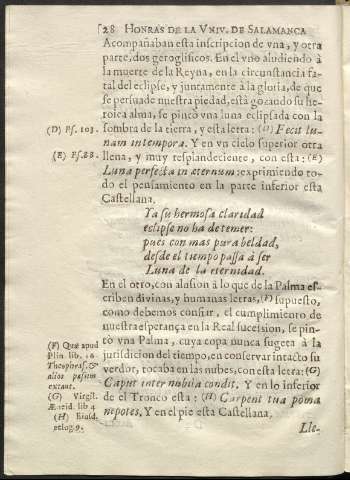 28 HONRAS DE LA VNIV. DE SALAMANCA
Acompañaban esta inscripcion de vna, y otra
parte, dos geroglificos. En el vno aludiendo à
la muerte de la Reyna, en la circunstancia fa-
tal del eclipse, y juntamente à la gloria, de que
se persuade nuestra piedad, està gozando su he-
roica alma, se pinçò vna luna eclipsada con la
(D) Ps. 103. sombra de la tierra, y esta letra: (D) Fecit lu-
nam in tempora. Y en vn cielo superior otra
(E) Ps. 88. llena, y muy resplandeciente, con esta: (E)
Luna perfecta in æternum: exprimiendo to-
do el pensamiento en la parte inferior esta
Castellana.
Ya su hermosa claridad
eclipse no ha de temer:
pues con mas pura beldad,
desde el tiempo passa à ser
Luna de la eternidad.
En el otro, con alusion à lo que de la Palma es-
criben divinas, y humanas letras, (F) supuesto,
como debemos confiar, el cumplimiento de
nuestra esperança en la Real sucession, se pin-
tò vna Palma, cuya copa nunca sugeta à la
jurisdicion del tiempo, en conservar intacto su
verdor, tocaba en las nubes, con esta letra: (G)
Caput inter nubila condit. Y en lo inferior
de el Tronco esta: (H) Carpent tua poma
nepotes, Y en el pie esta Castellana,
(F) Quæ apud
Plin. lib. 16.
Theophras. &
alios passim
extant.
(G) Virgil.
Æneid. lib. 4
(H) Eiusd.
eclog. 9.
Lle-